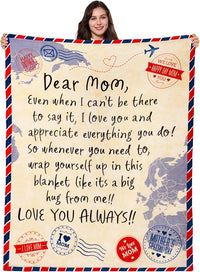 WE LOVE
HAPPY DAY MOM
Dear Mom,
Even when I can't be there
to say it, I love you and
appreciate everything you do!
So whenever you need to,
wrap yourself up in this
blanket like its a big
hug from me!!
LOVE YOU ALWAYS!!
I LOVE MOM
We love
MOM